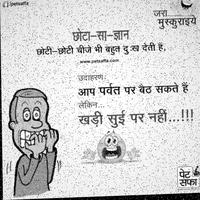 /petsaffa
जरा
मुस्कुराइये
छोटा-सा-ज्ञान
छोटी-छोटी चीजे भी बहुत दुःख देती हैं,
www.petsaffa.com
उदाहरण:
आप पर्वत पर बैठ सकते हैं
लेकिन...
खड़ी सुई पर नहीं...!!!
पेट
सफा